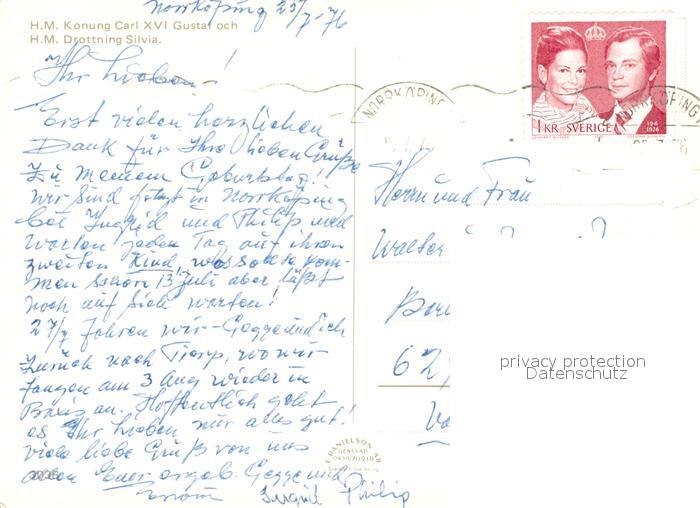 Norrköping 25/7-76
H.M. Konung Carl XVI Gustaf och
H.M. Drottning Silvia.
Ihr Lieben!
Erst vielen herzlichen
Dank für Ihre lieben Grüße
zu meinem Geburtstag!
Wir sind jetzt in Norrköping
bei Ingrid und Philip und
warten jeden Tag auf ihren
zweiten Kind, was sollte kom-
men schon 13 Juli aber läßt
noch auf sich warten!
27/7 fahren wir - Gogge und ich
zurück nach Tierp, wo wir
fangen am 3 Aug wieder in
Praxis an. Hoffentlich geht
es Ihr lieben nur alles gut!
viele liebe Grüß von uns
allen Euer ergeb. Gogge und
Ingrid Philip
NORRKÖPING
NORRKÖPING
1 KR SVERIGE
19 6
1976
Herrn und Frau
Walter
62
privacy protection
Datenschutz
DANIELSON AB